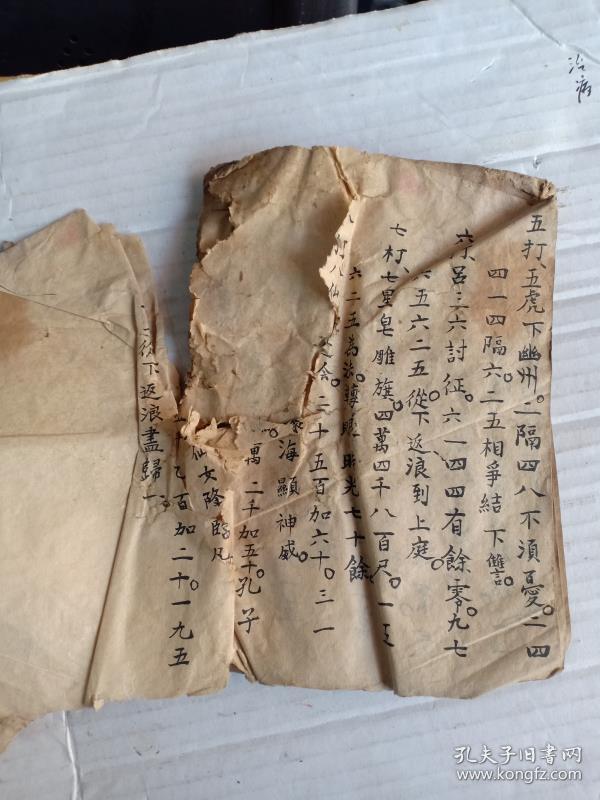 治病
五打、五虎下幽州。一隔四八不須憂。二四
四一四隔。六二五相爭結下讐。
六打呂三六討征。六一四四有餘零。九七
六五六二五從。下返浪到上庭。
七打、七星皂雕旗。四萬四千八百尺。一五
六二五為法 光七十餘。
八打八仙 會。二十五百加六十。三一
海顯神威。
萬二千加五十。孔子
仙女降臨凡
百加二十。一九五
從下返浪盡歸一。
孔夫子旧书网
www.kongfz.com